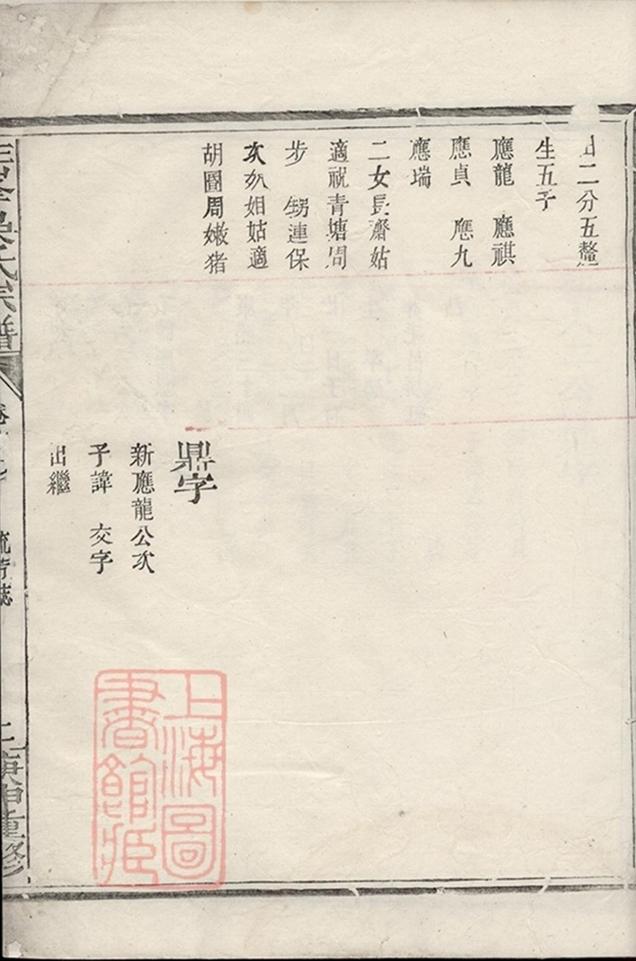 二分五釐
生五子
應龍 應祺
應貞 應九
應瑞
二女長齋姑
適祝青塘周
步 甥連保
次奶姐姑適
胡圖周嫩猪
鼎字
新應龍公次
子諱 交字
出繼
氏宗譜
庚申重修
上海圖
書館藏